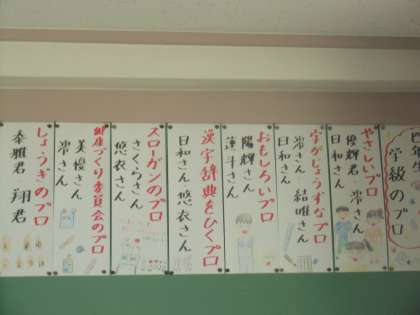 年生
学級のプロ
やさしいプロ
優輝君 澪さん
日和さん
字がじょうずなプロ
澪さん 結唯さん
日和さん
おもしろいプロ
陽輝さん
蓮斗さん
漢字辞典をひくプロ
日和さん 悠衣さん
スローガンのプロ
さくらさん
悠衣さん
健康づくり委員会のプロ
美優さん
澪さん
しょうぎのプロ
泰雅君 翔君